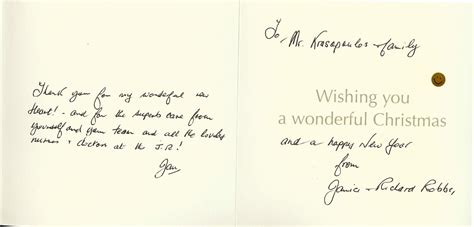 Thank you for my wonderful new
Heart! - and for the superb care from
yourself and your team and all the lovely
nurses + doctors at the J.R!
Jan
To, Mr. Krasopoulos + family
Wishing you
a wonderful Christmas
and a happy New Year
from
Janice + Richard